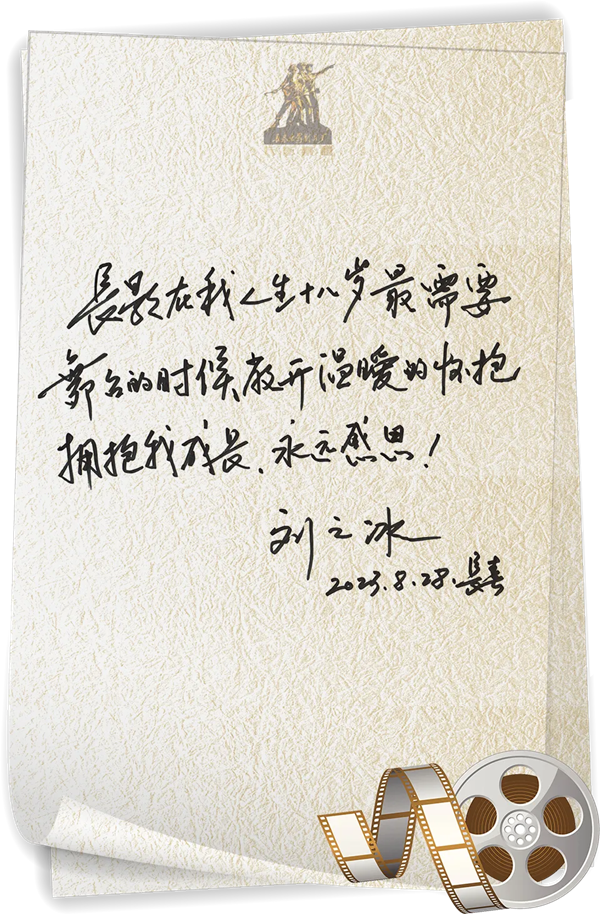 長影在我人生十八岁最需要
舞台的时候,敞开温暧的怀抱
拥抱我成長,永远感恩!
刘之冰
2023.8.28.長春